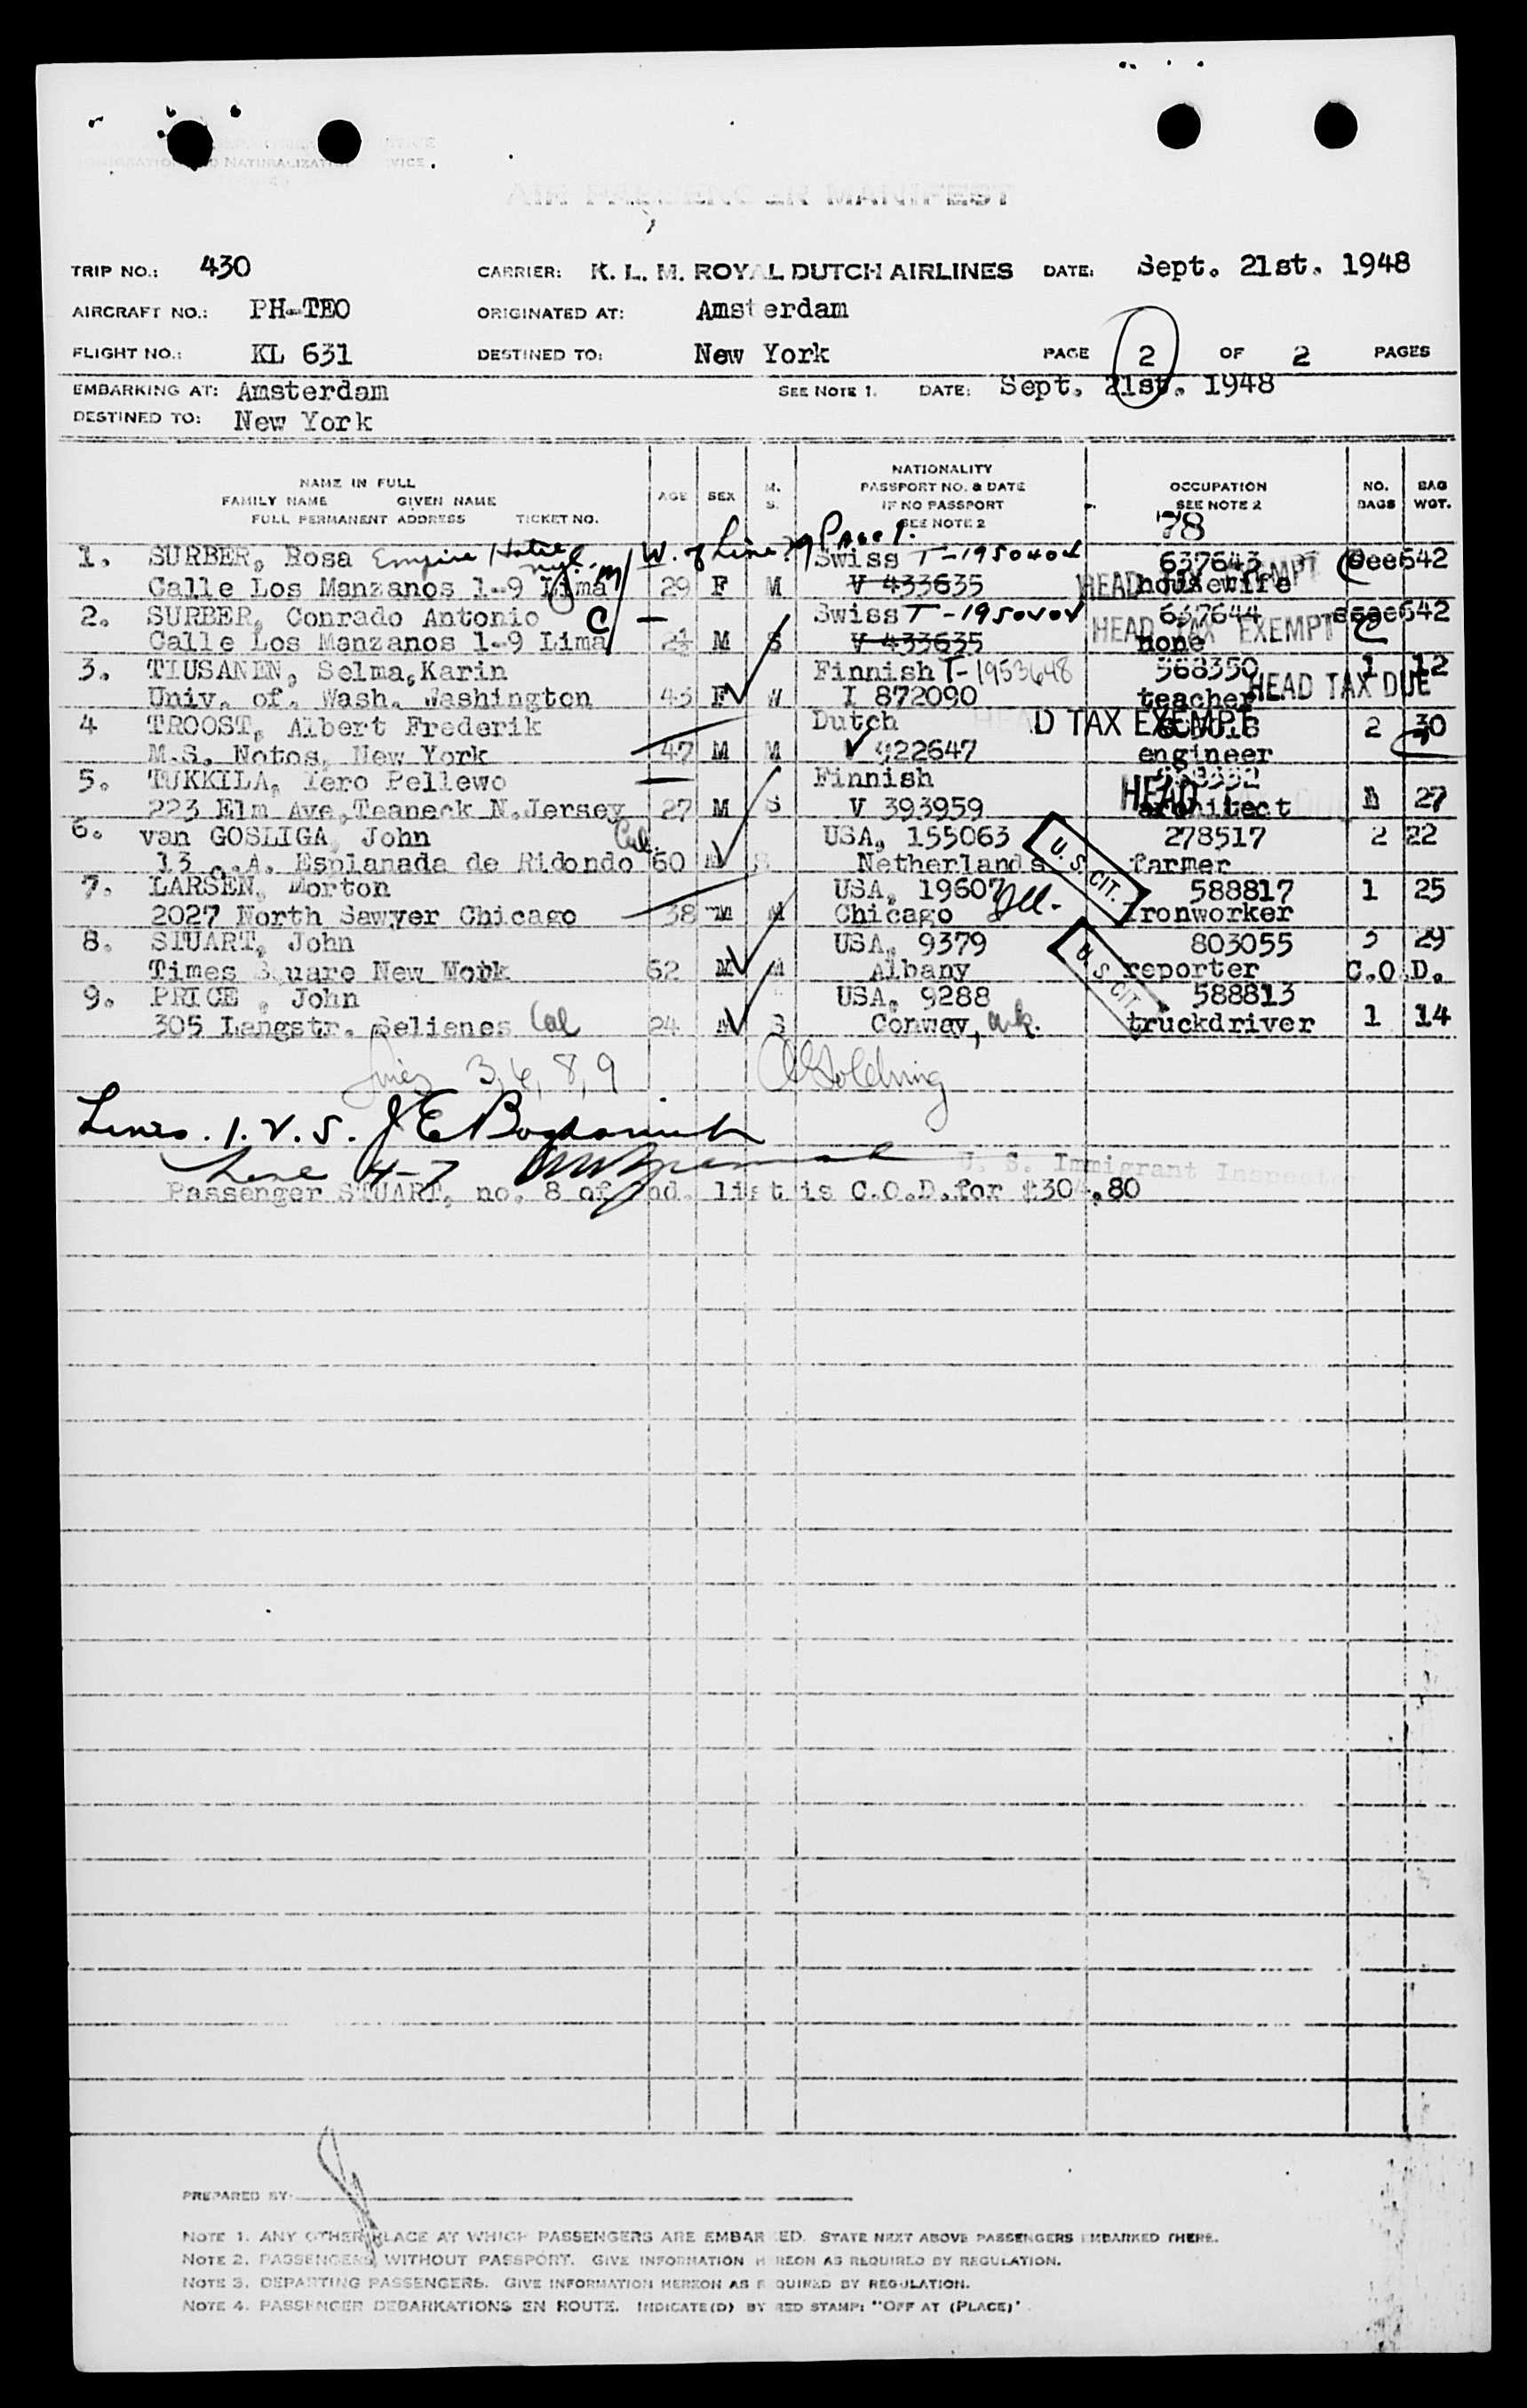 AIR PASSENGER MANIFEST
TRIP NO.: 430 CARRIER: K. L. M. ROYAL DUTCH AIRLINES DATE: Sept. 21st. 1948
AIRCRAFT NO.: PH-TEO ORIGINATED AT: Amsterdam
FLIGHT NO.: KL 631 DESTINED TO: New York PAGE 2 OF 2 PAGES
EMBARKING AT: Amsterdam SEE NOTE 1. DATE: Sept. 21st. 1948
DESTINED TO: New York
NAME IN FULL
FAMILY NAME GIVEN NAME
FULL PERMANENT ADDRESS TICKET NO.
AGE SEX M. S.
NATIONALITY
PASSPORT NO. & DATE
IF NO PASSPORT
SEE NOTE 2
OCCUPATION
SEE NOTE 2
NO. BAGS
BAG WGT.
78
W. of Line 29 Page 1.
1. SURBER, Rosa Empire Hotel Swiss T-1950404 637643 see 642
Calle Los Manzanos 1-9 Lima 29 F M V 433635 HEAD TAX EXEMPT housewife
2. SURBER, Conrado Antonio C Swiss T-1950404 637644 see 642
Calle Los Manzanos 1-9 Lima 2½ M S V 433635 HEAD TAX EXEMPT none
3. TIUSANEN, Selma, Karin Finnish T-1953648 568350 1 12
Univ. of. Wash. Washington 43 F W I 872090 teacher HEAD TAX DUE
4 TROOST, Albert Frederik Dutch HEAD TAX EXEMPT 2 30
M.S. Notos, New York 47 M M V 922647 engineer
5. TUKKILA, Yero Pellewo Finnish
223 Elm Ave, Teaneck N.Jersey 27 M S V 393959 HEAD architect 27
6. van GOSLIGA, John Cal. USA, 155063 U. S. CIT. 278517 2 22
13 .A. Esplanada de Ridondo 60 M S Netherlands farmer
7. LARSEN, Morton USA, 19607 Ill. 588817 1 25
2027 North Sawyer Chicago 38 M M Chicago Ironworker
8. STUART, John USA, 9379 U. S. CIT. 803055 3 29
Times Square New Work 62 M M Albany reporter C.O.D.
9. PRICE, John USA, 9288 588813
305 Langstr. Selienes Cal 24 M S Conway, Ark. truckdriver 1 14
Lines 3, 6, 8, 9
Lines. 1. 2. 5. J E
Line 4-7
U. S. Immigrant Inspector
Passenger STUART, no. 8 of 2nd. list is C.O.D. for $304.80
PREPARED BY
NOTE 1. ANY OTHER PLACE AT WHICH PASSENGERS ARE EMBARKED. STATE NEXT ABOVE PASSENGERS EMBARKED THERE.
NOTE 2. PASSENGERS WITHOUT PASSPORT. GIVE INFORMATION HEREON AS REQUIRED BY REGULATION.
NOTE 3. DEPARTING PASSENGERS. GIVE INFORMATION HEREON AS REQUIRED BY REGULATION.
NOTE 4. PASSENGER DEBARKATIONS EN ROUTE. INDICATE(D) BY RED STAMP: "OFF AT (PLACE)"